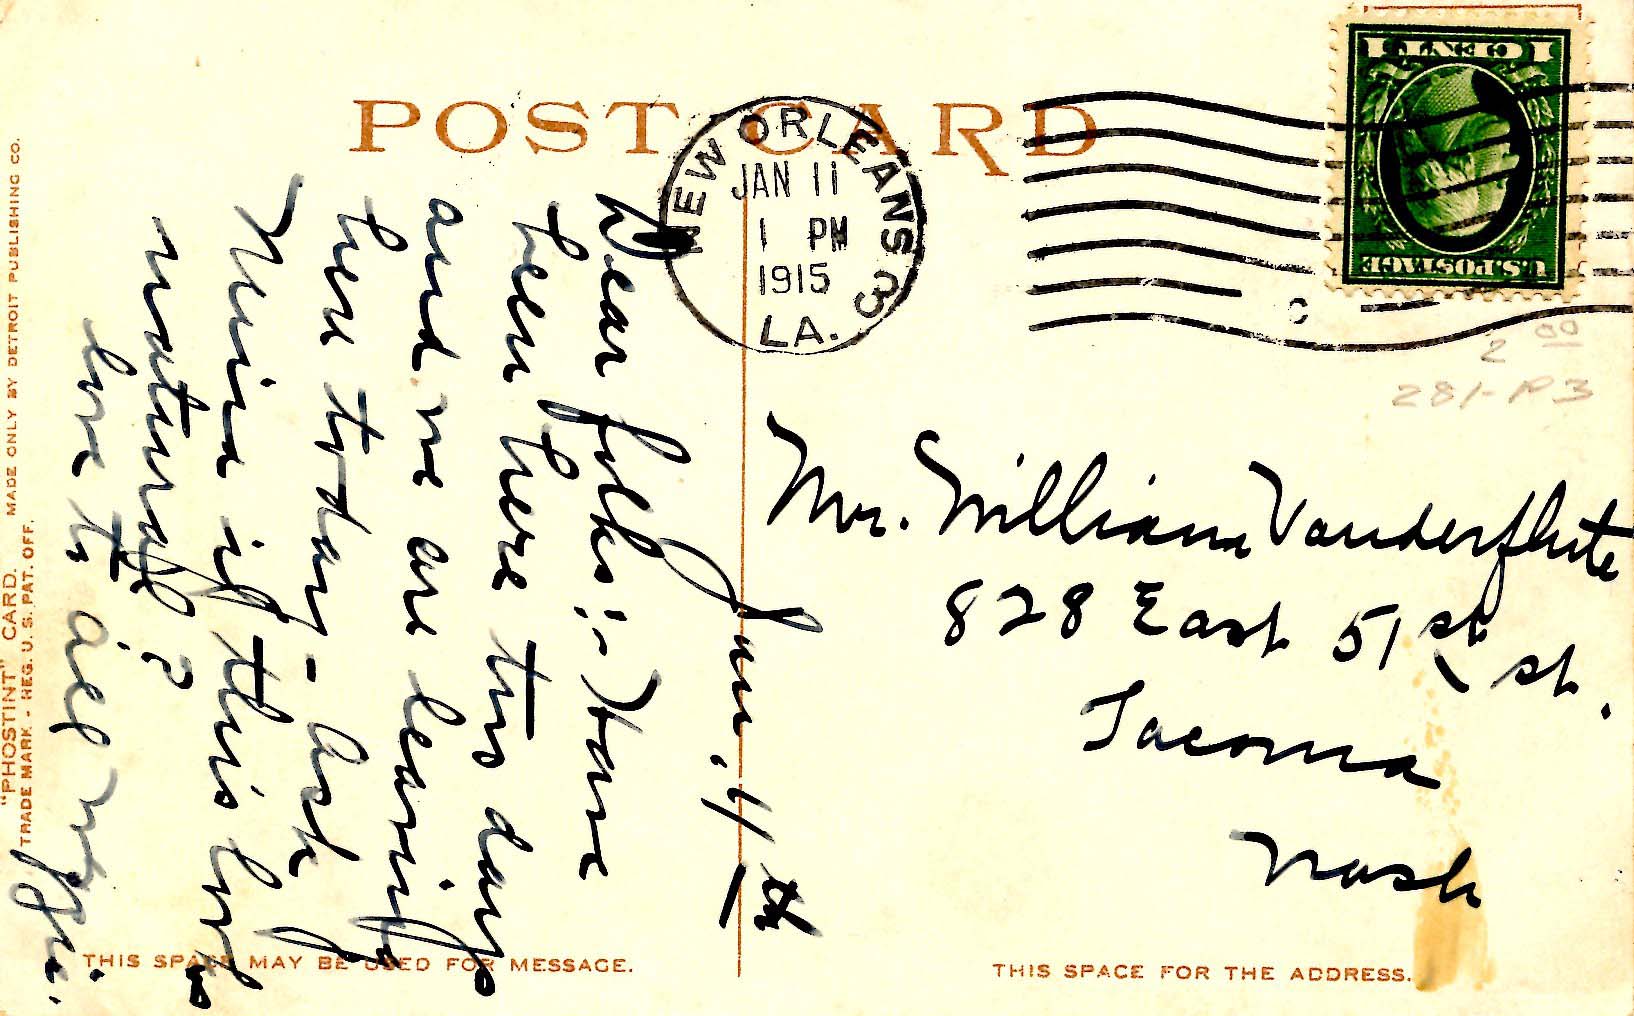 POST CARD
NEW ORLEANS 3
JAN 11
1 PM
1915
LA.
1 CENT 1
U.S. POSTAGE
2 00
281-P3
Jan. 11th
Dear folks:- Have
been here two days
and we are leaving
here to-day - Ask
if this looks
natural?
love to all
Mr. William Vanderflute
828 East 51st St.
Tacoma
Wash
"PHOSTINT" CARD. MADE ONLY BY DETROIT PUBLISHING CO.
TRADE MARK - REG. U. S. PAT. OFF.
THIS SPACE MAY BE USED FOR MESSAGE.
THIS SPACE FOR THE ADDRESS.